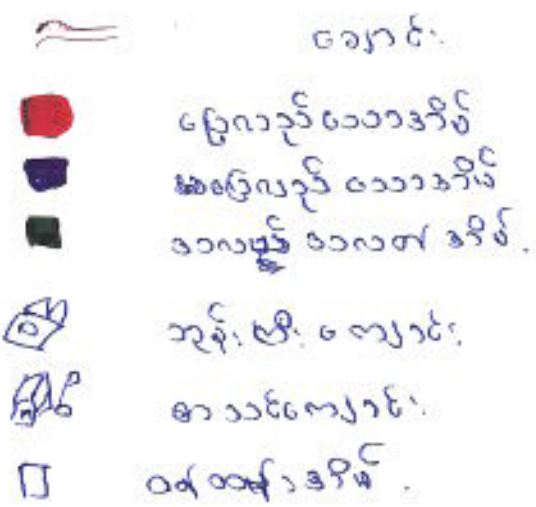 ချောင်း
ပြေလည်သောအိမ်
မပြေလည်သောအိမ်
အလယ်အလတ်အိမ်.
ဘုန်းကြီးကျောင်း
စာသင်ကျောင်း
အိမ်.